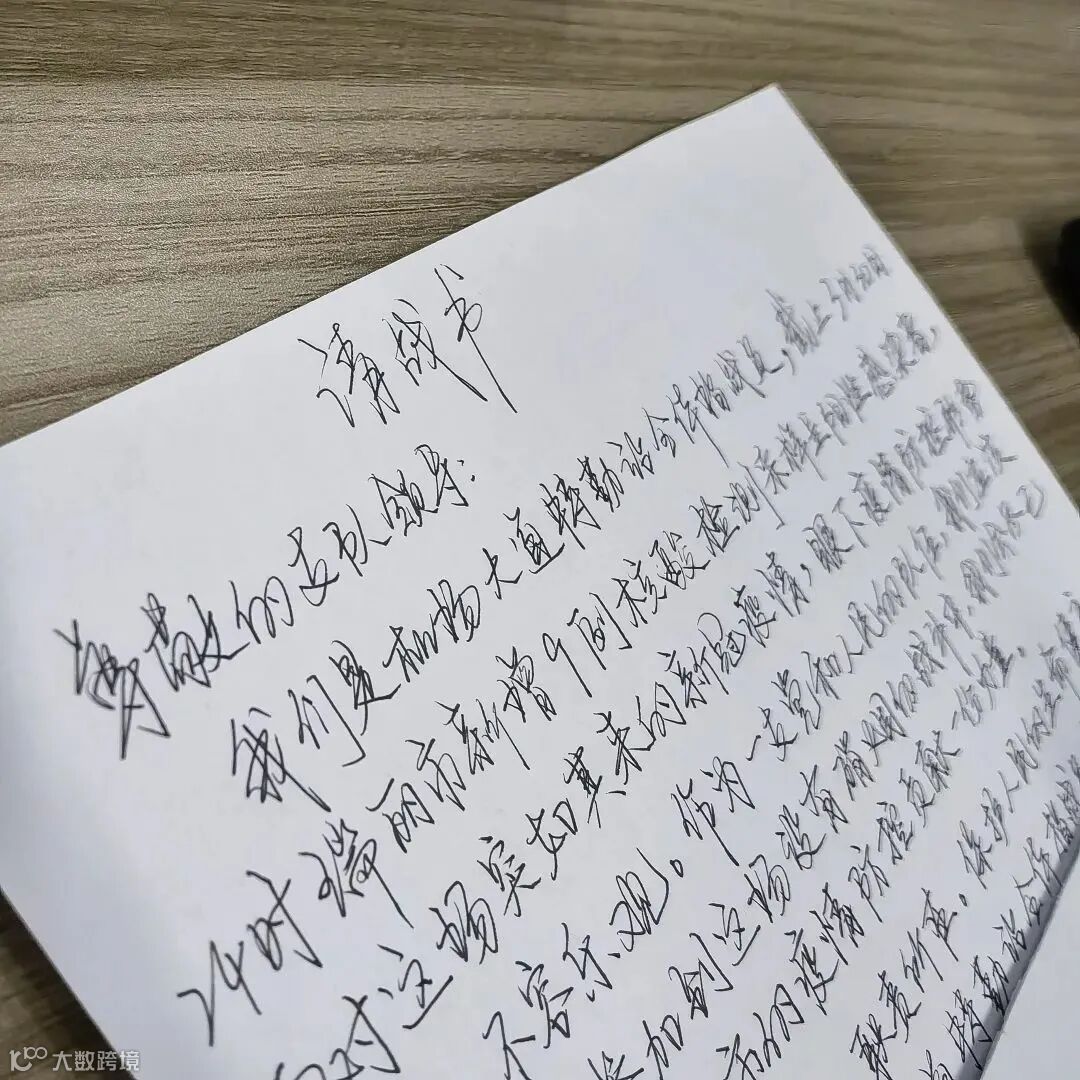 请战书
尊敬的支队领导：
我们是机场大道特勤站全体指战员，截止3月30日
24时瑞丽市新增9例核酸检测采样呈阳性感染者，
对这场突如其来的新冠疫情，眼下疫情防控形势
不容乐观。作为一支党和人民的队伍，我们应该
参加到这场没有硝烟的战斗中，我们
的疫情防控贡献一份力量。
职责所在。保护人民的生命
特勤站全体指战
大数跨境